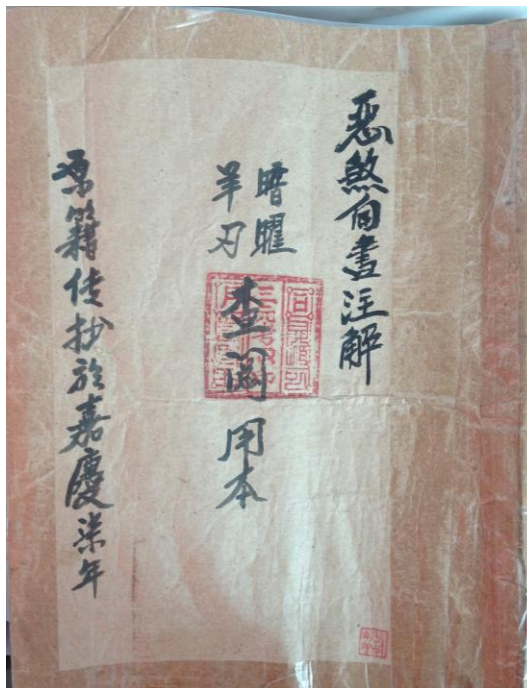 惡煞書注解
暗曜
羊刃
查阅用本
原籍传抄於嘉慶柒年